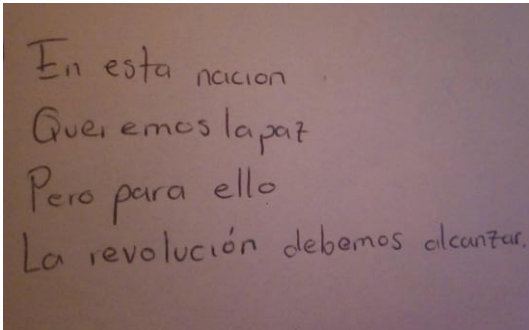 En esta nacion
Queremos la paz
Pero para ello
La revolución debemos alcanzar.